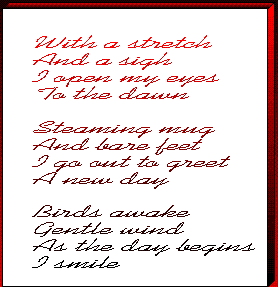 With a stretch
And a sigh
I open my eyes
To the dawn

Steaming mug
And bare feet
I go out to greet
A new day

Birds awake
Gentle wind
As the day begins
I smile